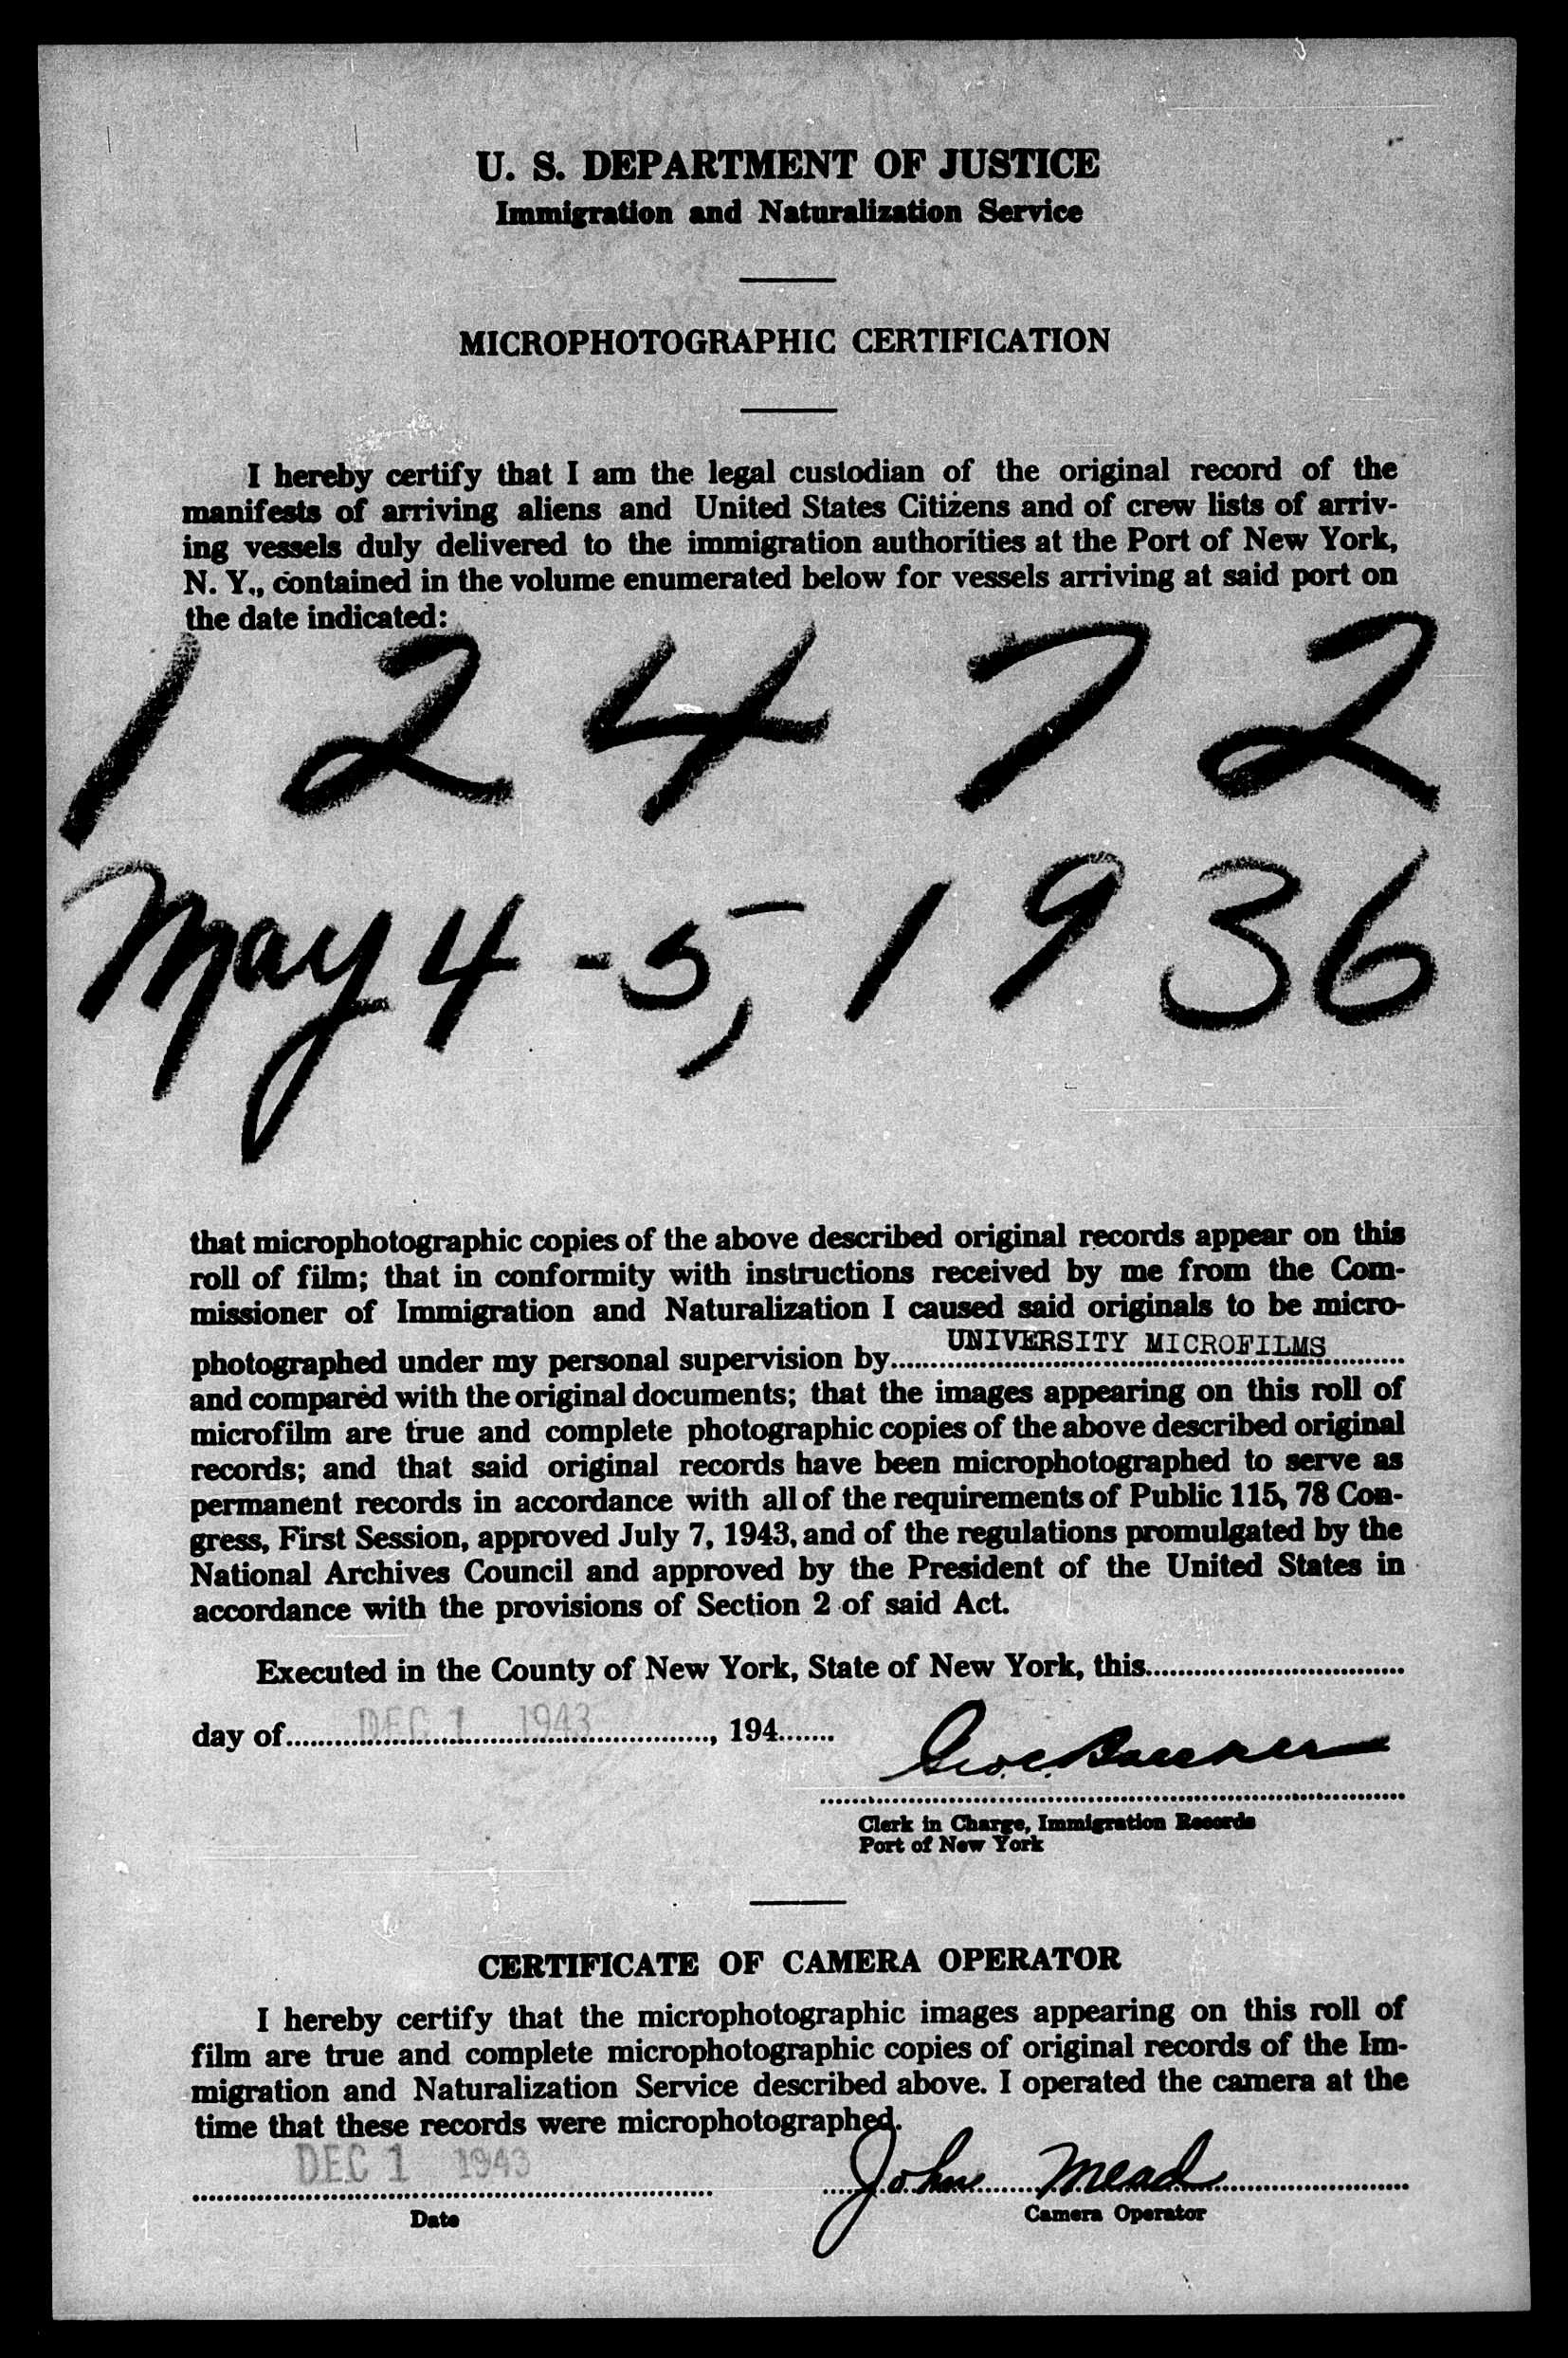 U. S. DEPARTMENT OF JUSTICE
Immigration and Naturalization Service
MICROPHOTOGRAPHIC CERTIFICATION
I hereby certify that I am the legal custodian of the original record of the
manifests of arriving aliens and United States Citizens and of crew lists of arriv-
ing vessels duly delivered to the immigration authorities at the Port of New York,
N. Y., contained in the volume enumerated below for vessels arriving at said port on
the date indicated:
1 2 4 7 2
May 4 - 5, 1936
that microphotographic copies of the above described original records appear on this
roll of film; that in conformity with instructions received by me from the Com-
missioner of Immigration and Naturalization I caused said originals to be micro-
photographed under my personal supervision by UNIVERSITY MICROFILMS
and compared with the original documents; that the images appearing on this roll of
microfilm are true and complete photographic copies of the above described original
records; and that said original records have been microphotographed to serve as
permanent records in accordance with all of the requirements of Public 115, 78 Con-
gress, First Session, approved July 7, 1943, and of the regulations promulgated by the
National Archives Council and approved by the President of the United States in
accordance with the provisions of Section 2 of said Act.
Executed in the County of New York, State of New York, this
day of DEC 1 1943, 194
Geo. C.
Clerk in Charge, Immigration Records
Port of New York
CERTIFICATE OF CAMERA OPERATOR
I hereby certify that the microphotographic images appearing on this roll of
film are true and complete microphotographic copies of original records of the Im-
migration and Naturalization Service described above. I operated the camera at the
time that these records were microphotographed.
DEC 1 1943 John Mead
Date Camera Operator